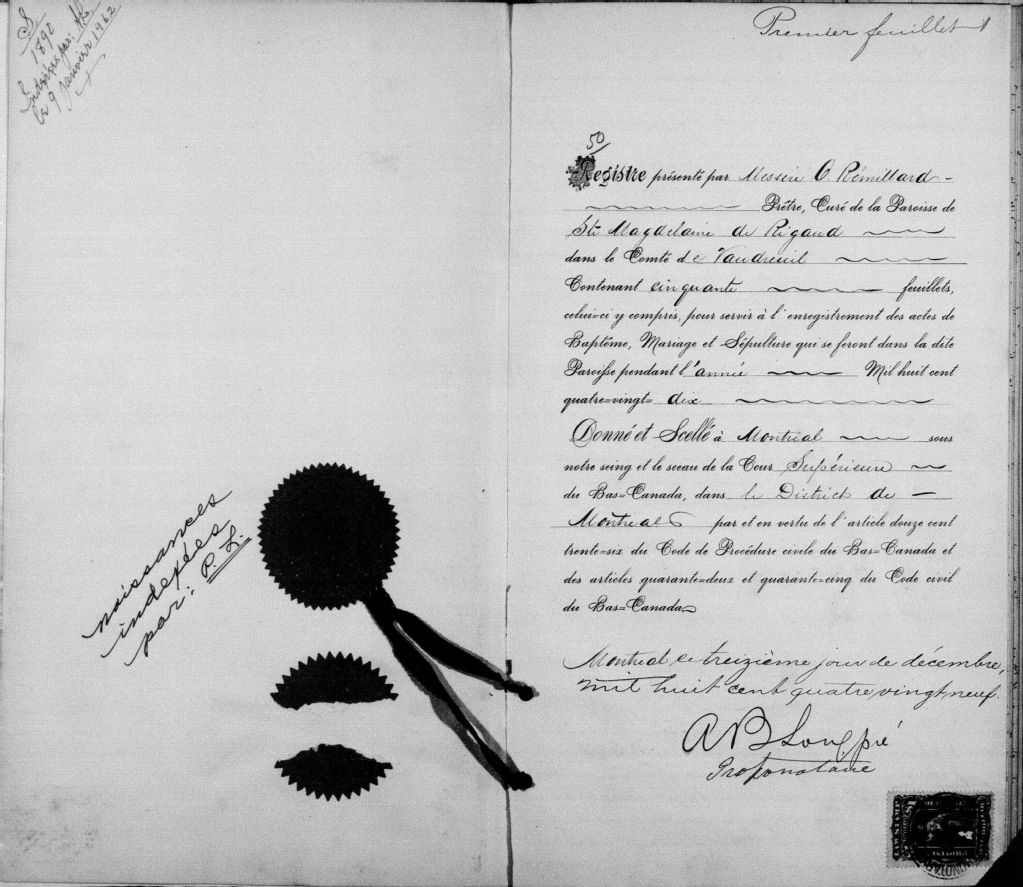 S
1890
le 9 janvier 1962
naissances
indexées
par: P. L.
Premier feuillet 1
50
Registre présenté par Messire O. Rémillard
Prêtre, Curé de la Paroisse de
Ste Magdelaine de Rigaud
dans le Comté de Vaudreuil
Contenant cinquante feuillets,
celui=ci y compris, pour servir à l'enregistrement des actes de
Baptême, Mariage et Sépulture qui se feront dans la dite
Paroisse pendant l'année Mil huit cent
quatre=vingt= dix
Donné et Scellé à Montréal sous
notre seing et le sceau de la Cour Supérieure
du Bas=Canada, dans le District de
Montréal par et en vertu de l'article douze cent
trente=six du Code de Procédure civile du Bas=Canada et
des articles quarante=deux et quarante=cinq du Code civil
du Bas=Canada
Montréal ce treizième jour de décembre,
mil huit cent quatre vingt neuf.
A B Longpré
Protonotaire
LAW STAMP